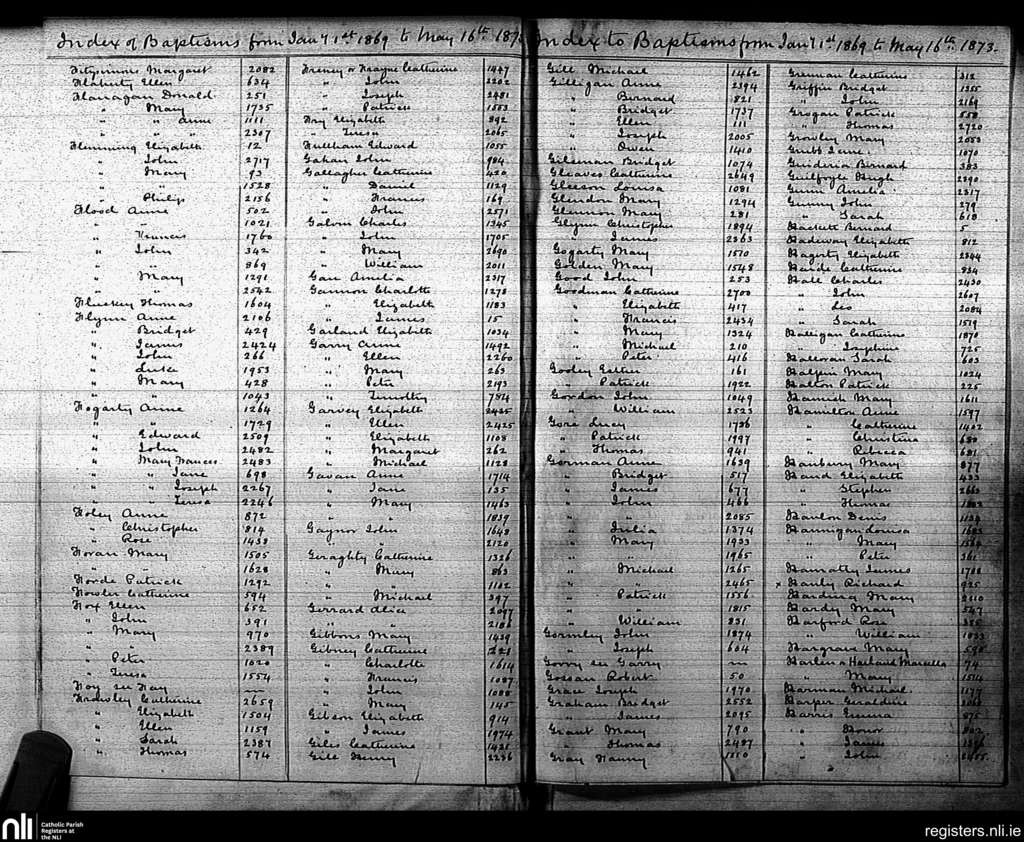 Index of Baptisms from Jany 1st 1869 to May 16th 187
Fitzsimons Margaret 2082
Flaherty Ellen 634
Flanagan Donald 251
" Mary 1735
" " Anne 1111
" " " 2307
Flemming Elizabeth 12
" John 2717
" Mary 93
" " 1528
" Philip 2156
Flood Anne 502
" " 1021
" Francis 1760
" John 342
" " 869
" Mary 1291
" " 2542
Fluskey Thomas 1604
Flynn Anne 2106
" Bridget 429
" James 2424
" John 266
" Luke 1953
" Mary 428
" " 1043
Fogarty Anne 1264
" " 1729
" Edward 2509
" John 2482
" Mary Frances 2483
" " Jane 698
" " Joseph 2267
" " Teresa 2246
Foley Anne 872
" Christopher 814
" Rose 1438
Foran Mary 1505
" " 1628
Forde Patrick 1292
Fowler Catherine 594
Fox Ellen 652
" John 391
" Mary 970
" " 2389
" Peter 1020
" Teresa 1554
Foy see Fay —
Frawley Catherine 2659
" Elizabeth 1504
" Ellen 1159
" Sarah 2387
" Thomas 574
Freney or Freyne Catherine 1447
" John 2202
" Joseph 2481
" Patrick 1553
Fry Elizabeth 892
" Teresa 2065
Fulham Edward 1055
Gahan John 984
Gallagher Catherine 420
" Daniel 1129
" Francis 169
" John 2571
Galvin Charles 1345
" John 1705
" Mary 2690
" William 2011
Gan Amelia 2317
Gannon Charlotte 1278
" Elizabeth 1183
" James 15
Garland Elizabeth 1034
Garry Anne 1492
" Ellen 2260
" Mary 263
" Peter 2193
" Timothy 784
Garvey Elizabeth 2425
" Ellen 2425
" Elizabeth 1108
" Margaret 262
" Michael 1128
Gavan Anne 1714
" Jane 135
" Mary 1463
" " 1839
Gaynor John 1648
" " 2120
Geraghty Catherine 1326
" Mary 863
" " 1102
" Michael 397
Gerrard Alice 2097
" " 2186
Gibbons Mary 1439
Gibney Catherine 221
" Charlotte 1614
" Francis 1087
" John 1088
" Mary 145
Gibson Elizabeth 914
" James 1974
Giles Catherine 1421
Gill Henry 2236
Index to Baptisms from Jany 1st 1869 to May 16th 1873.
Gill Michael 1462
Gilligan Anne 2394
" Bernard 821
" Bridget 1737
" Ellen 111
" Joseph 2005
" Owen 1410
Gilsenan Bridget 1074
Gleaves Catherine 2649
Gleeson Louisa 1081
Glendon Mary 1294
Glennon Mary 281
Glynn Christopher 1894
" James 2363
Gogarty Mary 1570
Golden Mary 1548
Good John 253
Goodman Catherine 2700
" Elizabeth 417
" Francis 2434
" Mary 1324
" Michael 210
" Peter 416
Gooley Esther 161
" Patrick 1922
Gordon John 1049
" William 2523
Gore Lucy 1786
" Patrick 1997
" Thomas 941
Gorman Anne 1639
" Bridget 517
" James 677
" John 466
" " 2085
" Julia 1374
" Mary 1933
" " 1965
" Michael 1265
" " 2465
" Patrick 1556
" " 1815
" William 831
Gormley John 1874
" Joseph 604
Gorry see Garry —
Gossan Robert 50
Grace Joseph 1970
Graham Bridget 2552
" James 2095
Grant Mary 790
" Thomas 2487
Gray Fanny
Grennan Catherine 312
Griffin Bridget 1355
" John 2169
Grogan Patrick 558
" Thomas 2720
Growley Mary 2053
Grubb Jane 1070
Guideria Bernard 383
Guilfoyle Hugh 2290
Gunn Amelia 2317
Gunny John 279
" Sarah 618
Hackett Bernard 5
Hadeway Elizabeth 812
Hagerty Elizabeth 2344
Haide Catherine 834
Hall Charles 2430
" John 2607
" Leo 2084
" Sarah 1519
Halligan Catherine 1870
" Josephine 725
Halloran Sarah 603
Halpin Mary 1024
Halton Patrick 225
Hamich Mary 1611
Hamilton Anne 1597
" Catherine 1402
" Christina 680
" Rebecca 681
Hanbury Mary 877
Hand Elizabeth 433
" Stephen 2663
" Thomas
Hanlon Denis 1134
Hannigan Louisa
" Mary
" Peter 361
Hanratty James
x Hanly Richard 925
Harding Mary 2110
Hardy Mary 547
Harford Rose
" William
Hargrave Mary 595
Harlen or Harland Marcella 74
" Mary 1514
Harman Michael 1177
Harper Geraldine
Harris Emma 875
" Honor
" James
" John
nli
Catholic Parish
Registers at
the NLI
registers.nli.ie